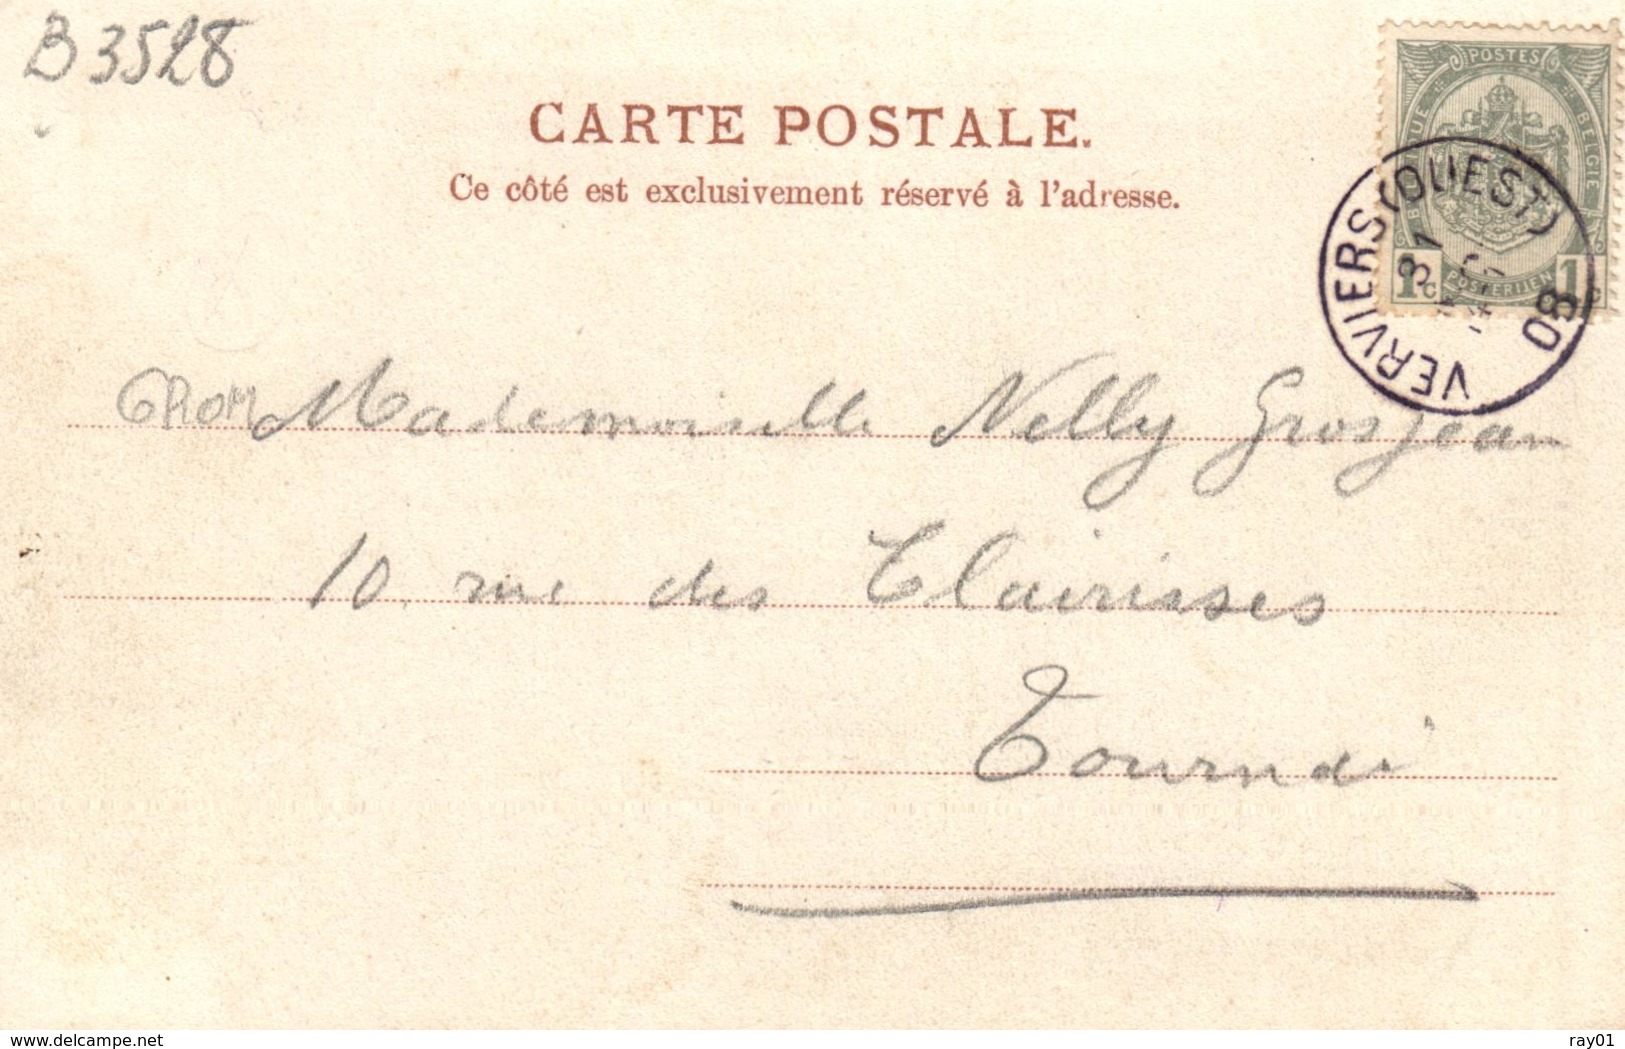 B3528
CARTE POSTALE.
Ce côté est exclusivement réservé à l'adresse.
POSTES
BELGIQUE BELGIE
1c POSTERIJEN 1c
VERVIERS (OUEST)
31
08
GROM
Mademoiselle Nelly Grosjean
10 rue des Clairisses
Tournai
www.delcampe.net
ray01